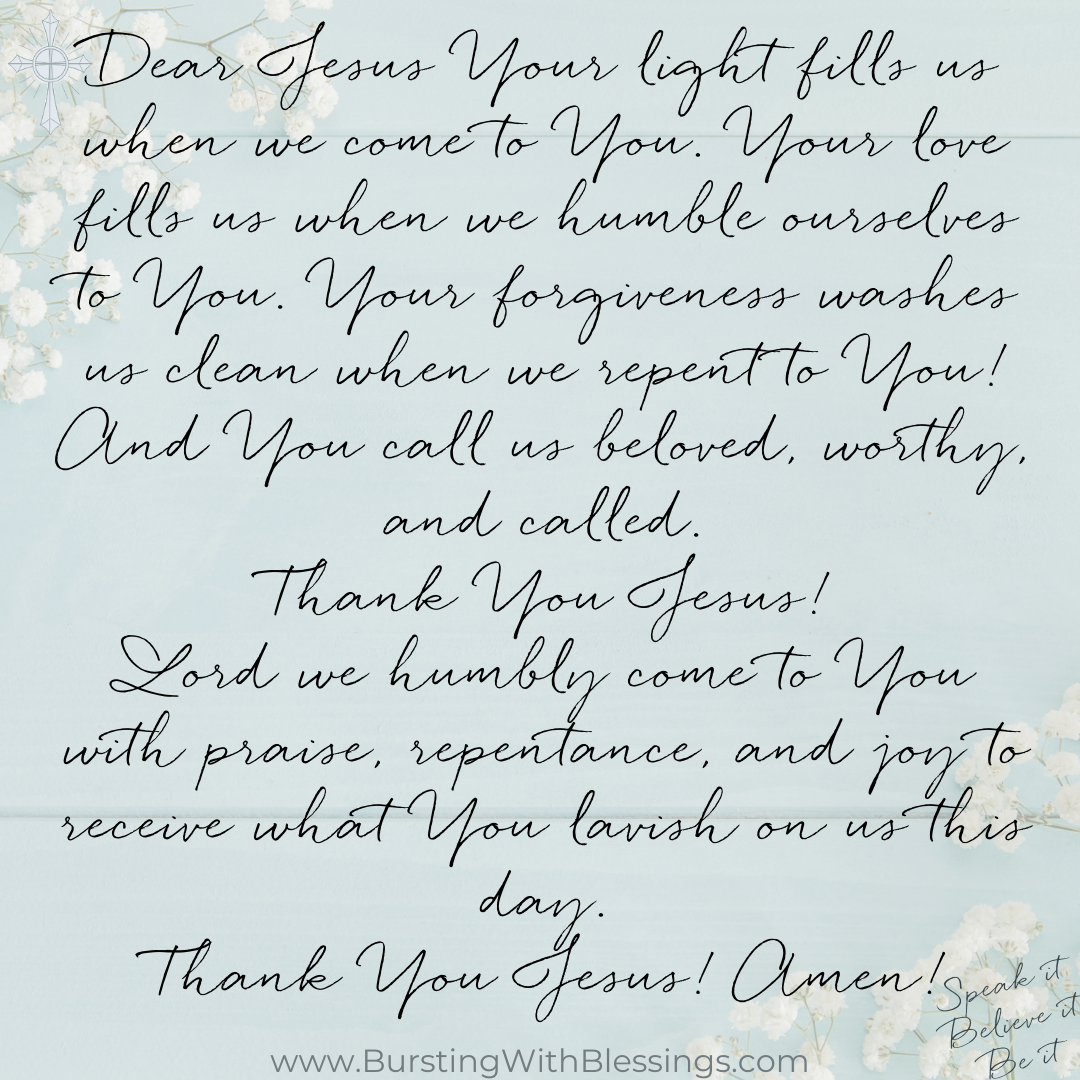 Dear Jesus Your light fills us
when we come to You. Your love
fills us when we humble ourselves
to You. Your forgiveness washes
us clean when we repent to You!
And You call us beloved, worthy,
and called.
Thank You Jesus!
Lord we humbly come to You
with praise, repentance, and joy to
receive what You lavish on us this
day.
Thank You Jesus! Amen!
Speak it
Believe it
Be it
www.BurstingWithBlessings.com